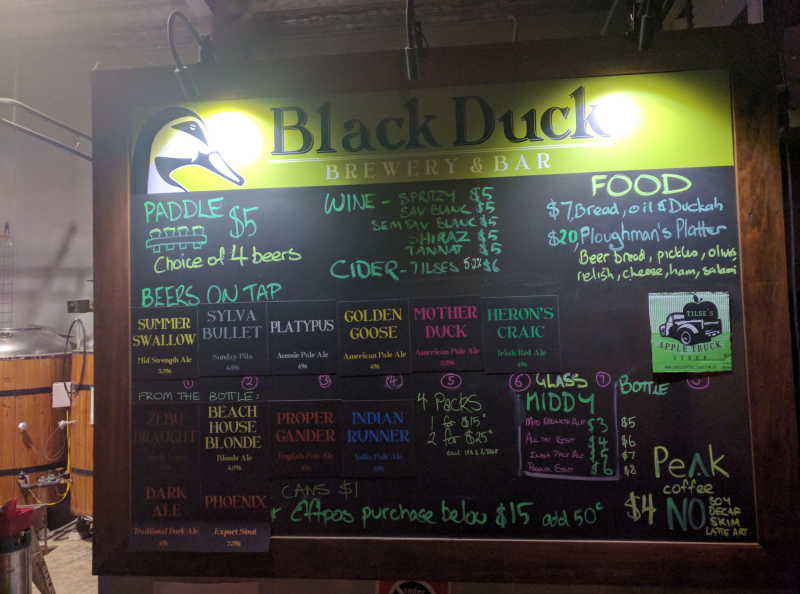 Black Duck
BREWERY & BAR
PADDLE $5
Choice of 4 beers
WINE - SPRITZY $5
SAV BLANC $5
SEM SAV BLANC $5
SHIRAZ $5
TANNAT $5
CIDER - TILSES 5.2% $6
FOOD
$7, Bread, oil & Duckah
$20, Ploughman's Platter
Beer bread, pickles, olives,
relish, cheese, ham, salami
BEERS ON TAP
SUMMER
SWALLOW
Mid Strength Ale
SYLVA
BULLET
Sunday Pils
PLATYPUS
Aussie Pale Ale
GOLDEN
GOOSE
American Pale Ale
MOTHER
DUCK
American Pale Ale
HERON'S
CRAIC
Irish Red Ale
TILSE'S
APPLE TRUCK
CIDER
1 2 3 4 5 6 7
FROM THE BOTTLE:
ZEBU
DRAUGHT
BEACH
HOUSE
BLONDE
Blonde Ale
PROPER
GANDER
English Pale Ale
INDIAN
RUNNER
India Pale Ale
DARK
ALE
Traditional Dark Ale
PHOENIX
Export Stout
4 Packs
1 for $15
2 for $25
GLASS
MIDDY
BOTTLE
$3 $5
$4 $6
INDIA PALE ALE $5 $7
$6 $8
CANS $1
Eftpos purchase below $15 add 50c
Peak
coffee
$4 NO
SOY
DECAF
SKIM
LATTE ART